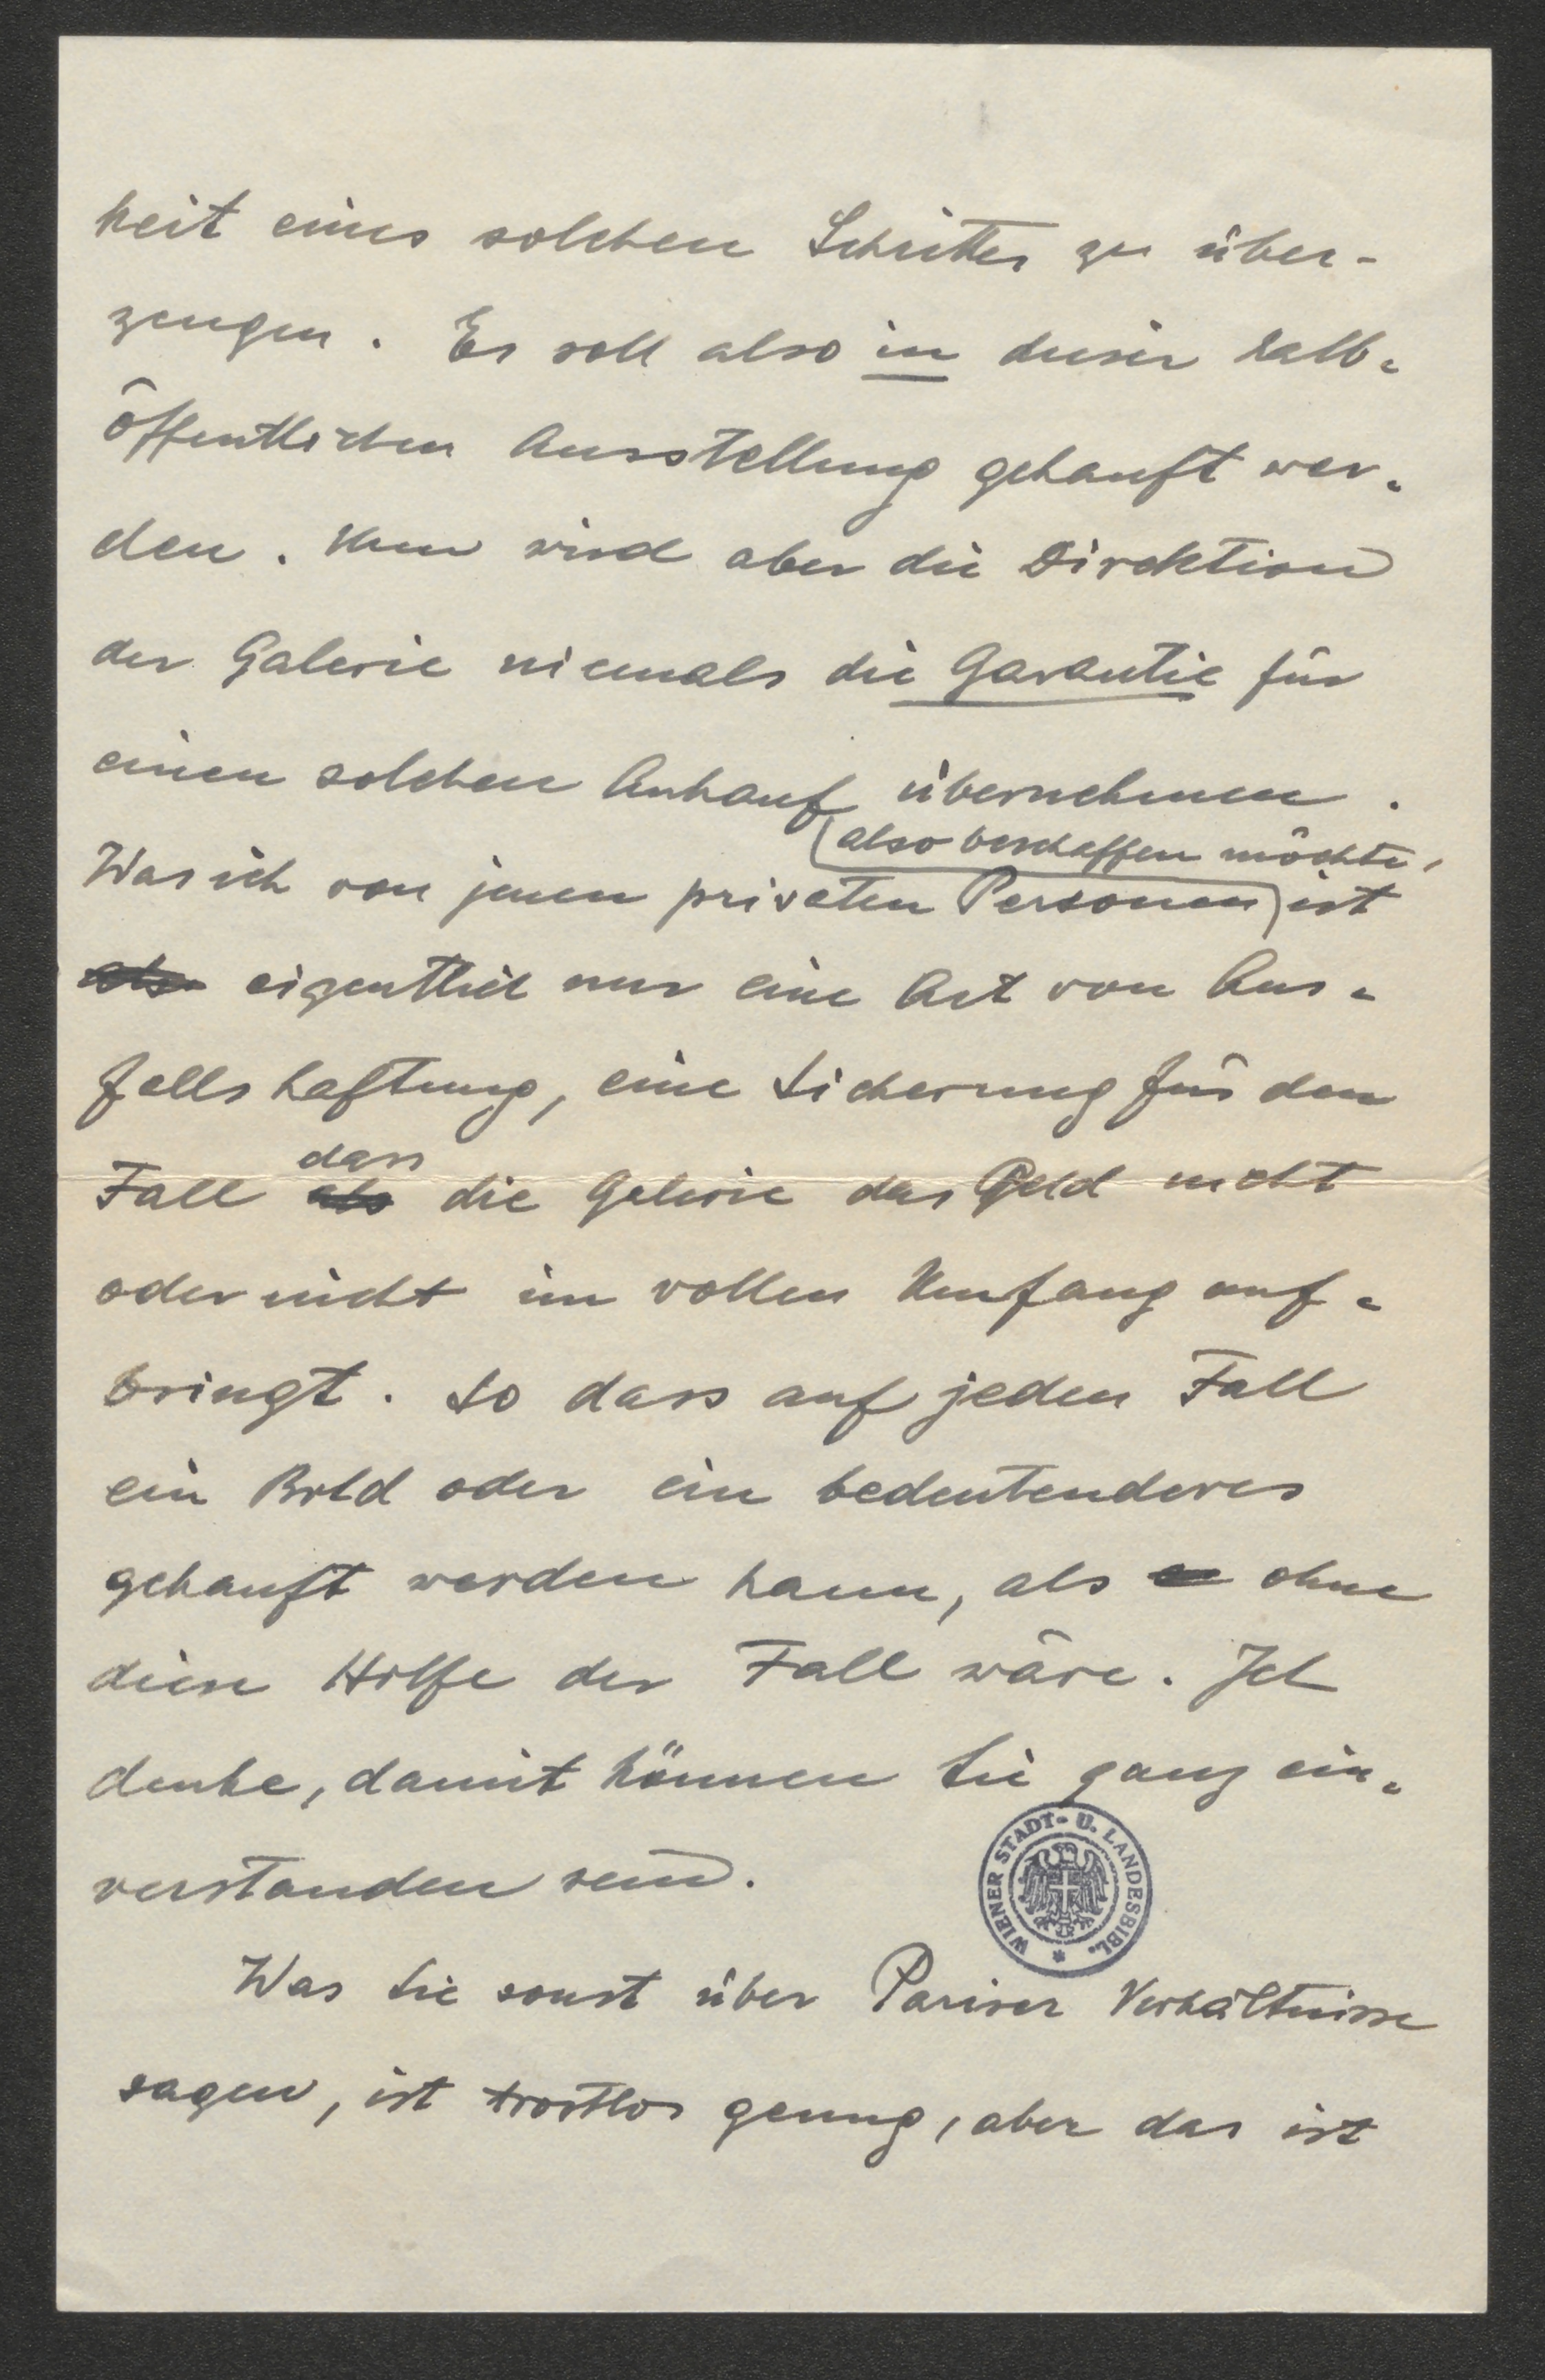 keit eines solchen Schrittes zu über-
zeugen. Es soll also in dieser halb-
öffentlichen Ausstellung gekauft wer-
den. Nun wird aber die Direktion
der Galerie niemals die Garantie für
einen solchen Ankauf übernehmen.
also beschaffen möchte,
Was ich von jenen privaten Personen ist
also eigentlich nur eine Art von Aus-
fallshaftung, eine Sicherung für den
dass
Fall als die Galerie das Geld nicht
oder nicht im vollen Umfang auf-
bringt. So dass auf jeden Fall
ein Bild oder ein bedeutenderes
gekauft werden kann, als ohne
diese Hilfe der Fall wäre. Ich
denke, damit können Sie ganz ein-
verstanden sein.
WIENER STADT- U. LANDESBIBL.
Was Sie sonst über Pariser Verhältnisse
sagen, ist trostlos genug, aber das ist